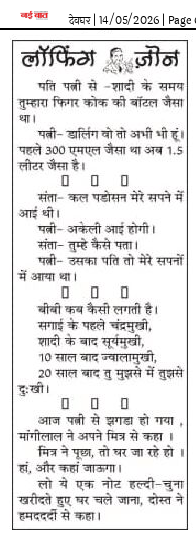 नई बात देवघर | 14/05/2026 | Page
लॉफिंग जौन
पति पत्नी से -शादी के समय
तुम्हारा फिगर कोक की बॉटल जैसा
था।
पत्नी- डार्लिंग वो तो अभी भी हूं।
पहले 300 एमएल जैसा था अब 1.5
लीटर जैसा है।
संता- कल पडोसन मेरे सपने में
आई थी।
पत्नी- अकेली आई होगी।
संता- तुम्हे कैसे पता।
पत्नी- उसका पति तो मेरे सपनों
में आया था।
बीबी कब कैसी लगती है।
सगाई के पहले चंद्रमुखी,
शादी के बाद सूर्यमुखी,
10 साल बाद ज्वालामुखी,
20 साल बाद तु मुझसे में तुझसे
दुःखी।
आज पत्नी से झगडा हो गया ,
मांगीलाल ने अपने मित्र से कहा ।
मित्र ने पूछा, तो घर जा रहे हो ।
हां, और कहां जाऊगा।
लो ये एक नोट हल्दी-चुना
खरीदते हुए घर चले जाना, दोस्त ने
हमदददर्दी से कहा।